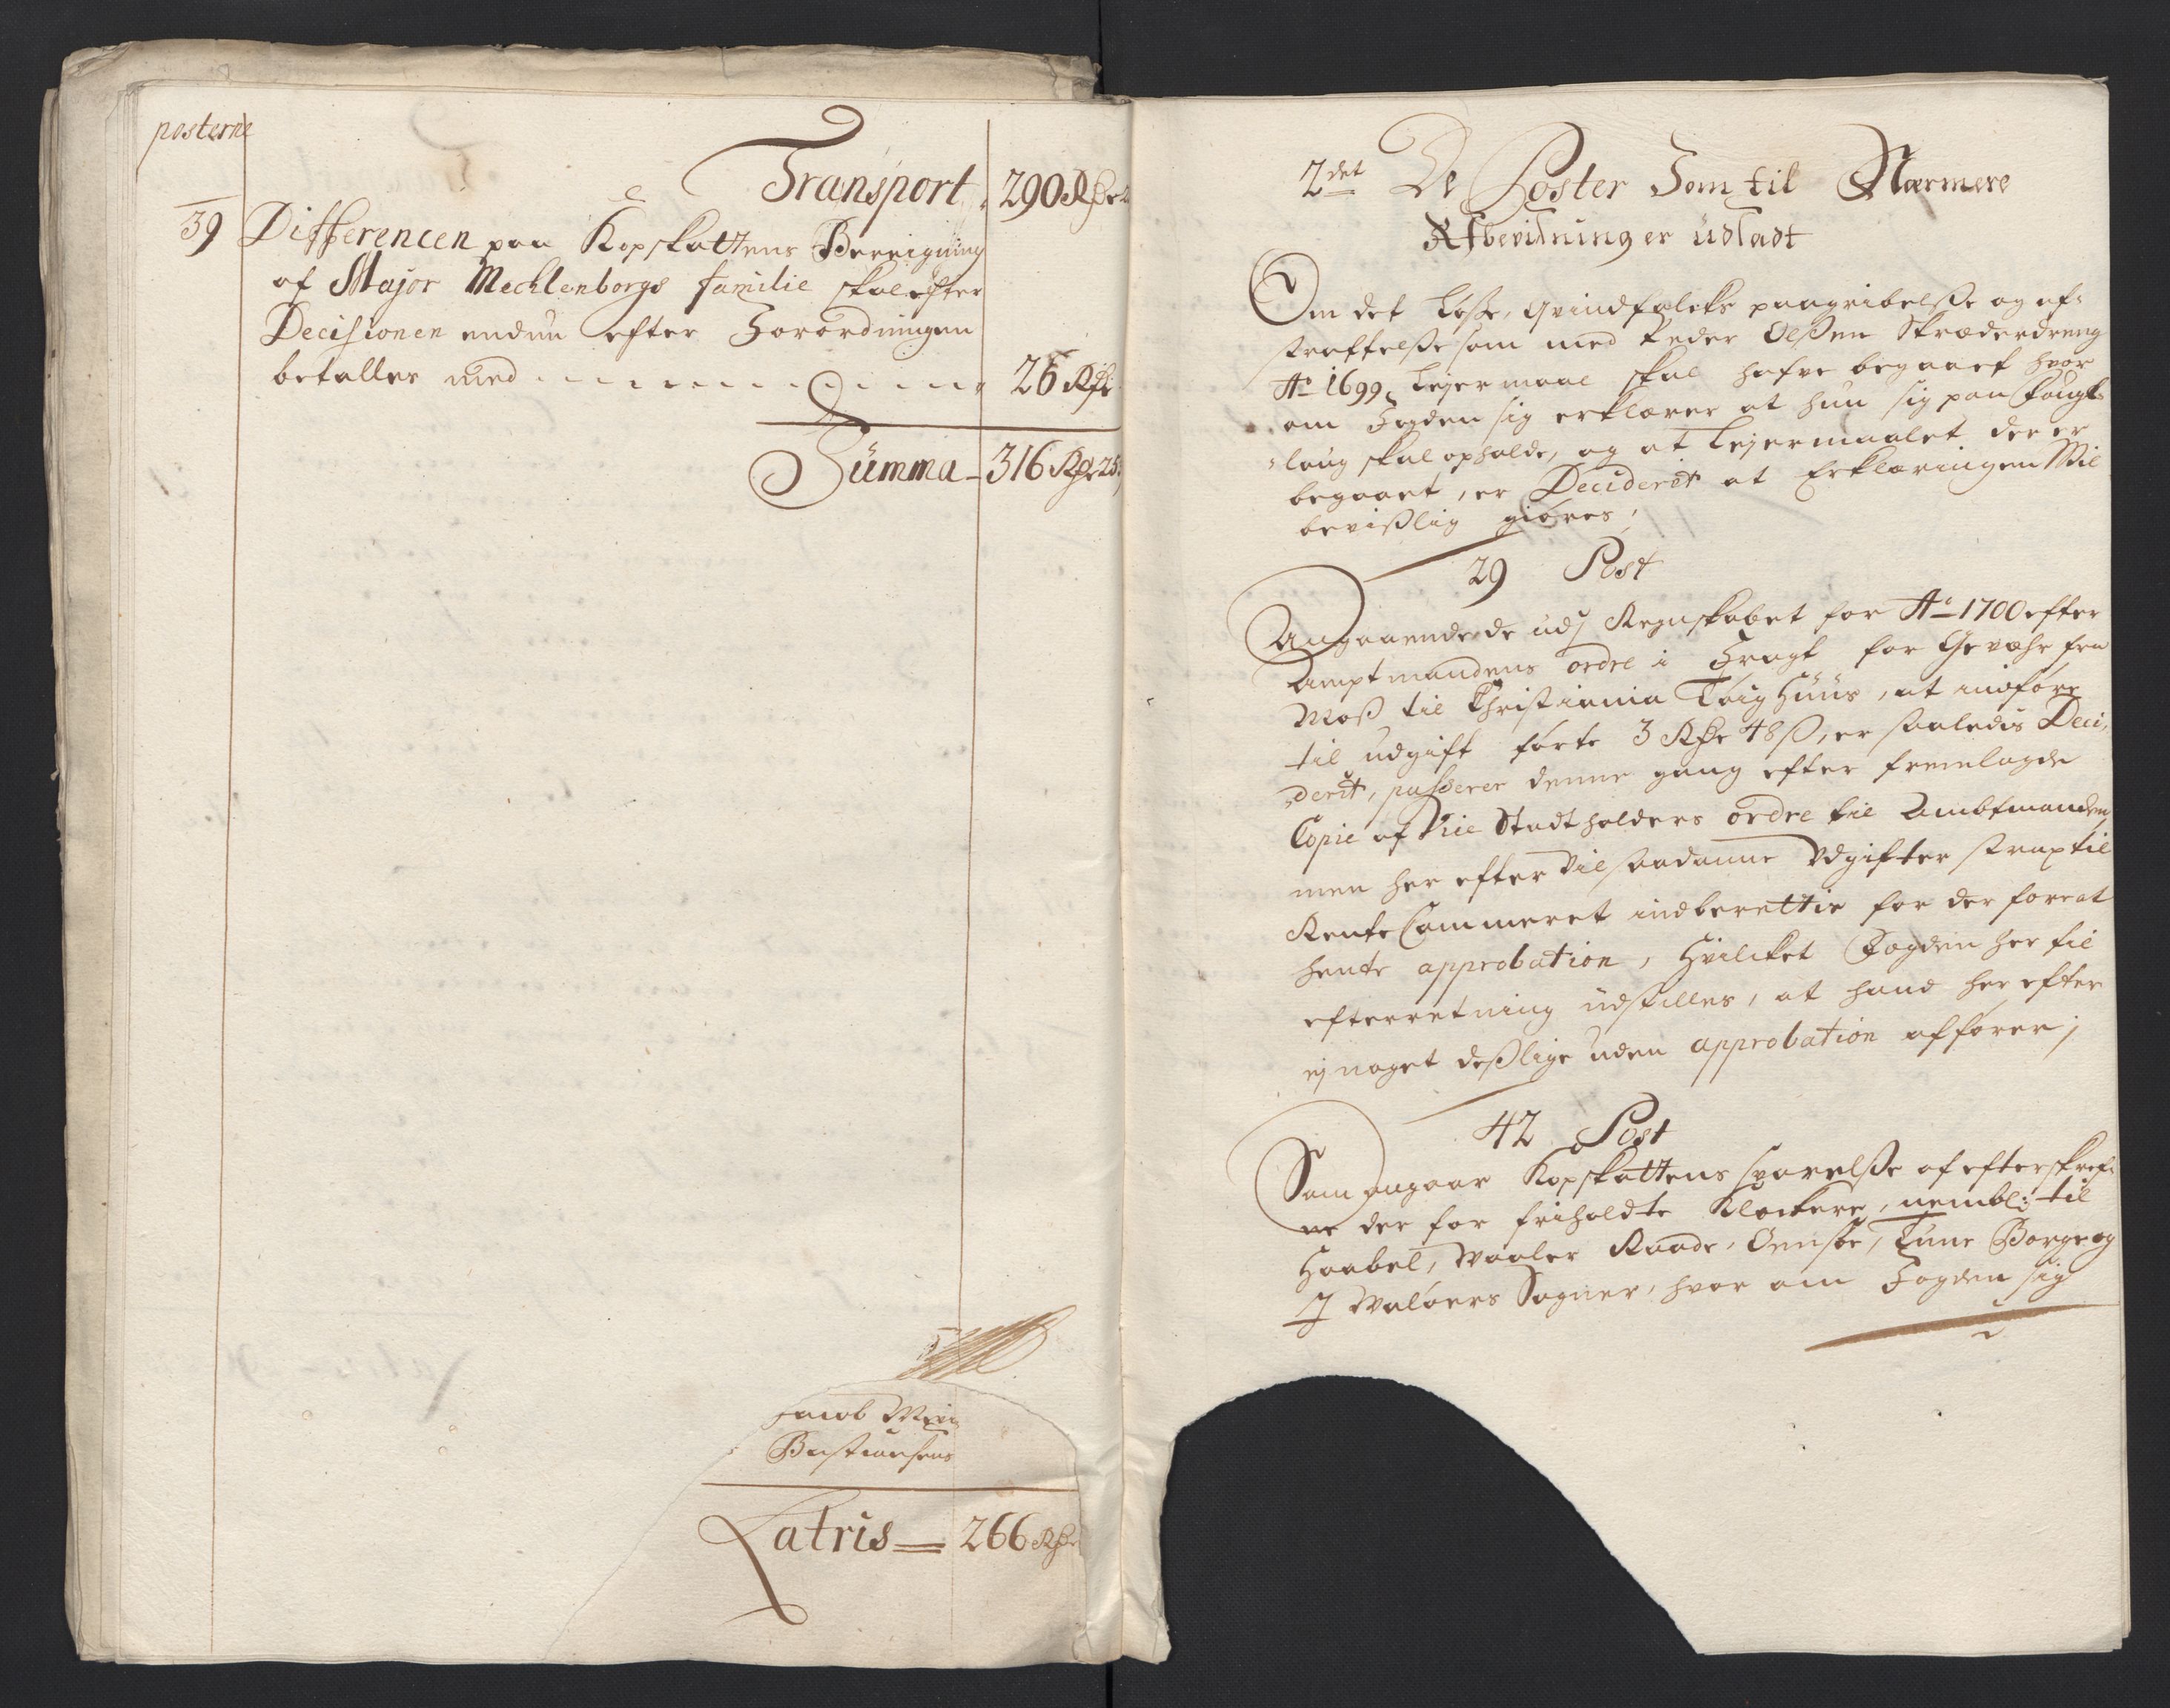 posterne
Transport 290 Rdr
39 Differencen paa Kopskattens Bereigning
af Major Mechlenborgs familie skal efter
Decisionen endnu efter Forordningen
betalles med 26 Rdr
Summa 316 Rdr 25
Jacob
Bastiansens
Latris 266 Rdr
2det De Poster Som til Nærmere
Afbevidning er udsadt
Om det løsse, qvindfolcks paagribelsse og af=
straffelsse som med Peder Olssen Skræderdreng
Ao 1699 Lejermaal skal hafve begaaet hvor
om Fogden sig erklærer at hun sig paa
laug skal opholde, og at Lejermaalet der er
begaaet, er Decideret at Erklæringen Vil
bevisslig giøres;
29 Post
Angaaende de udj Regnskabet for Ao 1700 efter
Amptmandens ordre i Fragt for Gevæhr fra
Moss til Christiania Tøighuus, at indføre
til udgift førte 3 Rdr 48 ß, er saaledis Deci=
derit, passerer denne gang efter fremlagde
Copie af Vice Stadtholders ordre til Ambtmanden,
men her efter Vil saadanne Udgifter strax til
Rente Cammeret indberettis for der forre at
hente approbation, hvilcket Fogden her til
efterretning udstilles, at hand her efter
ej noget desslige uden approbation afførrer;
42 Post
Som angaar Kopskattens svarelsse af efterskref=
ne der for friholdte Klockere, nembl: til
Haabel, Waaler Raade, Onnsøe, Tune Borge og
J Waløers Sogner, hvor om Fogden sig